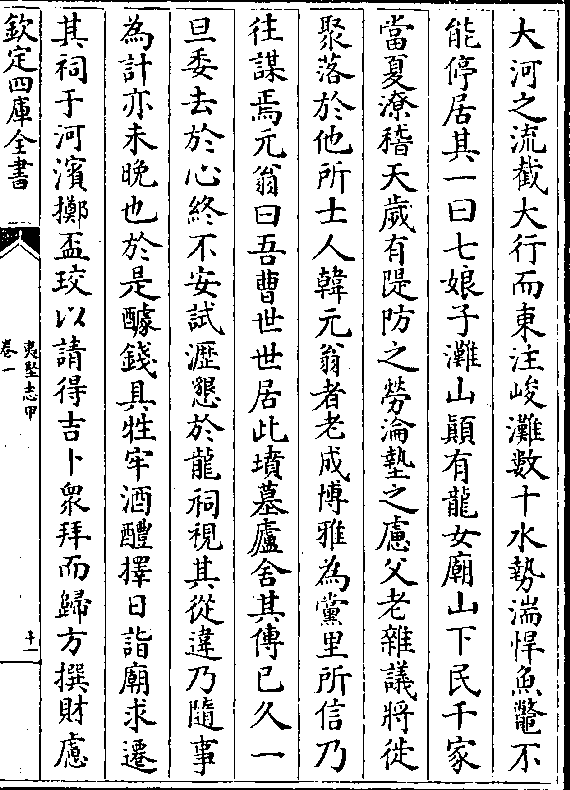 大河之流截大行而東汪峻灘數十水勢湍悍魚鼈不
能停居其一曰七娘子灘山顚有龍女廟山下民千家
當夏潦稽天歲有隄防之勞淪墊之慮父老雜議將徙
聚落於他所士人韓元翁者老成博雅為黨里所信乃
往謀焉元翁曰吾曹世世居此墳墓廬舍其傳已久一
旦委去於心終不安試瀝懇於龍祠視其從違乃隨事
為計亦未晚也於是醵錢具牲牢酒醴擇日詣廟求遷
其祠于河濱擲盃珓以請得吉卜衆拜而歸方撰財慮
欽定四庫全書
夷堅志甲
卷一
十一